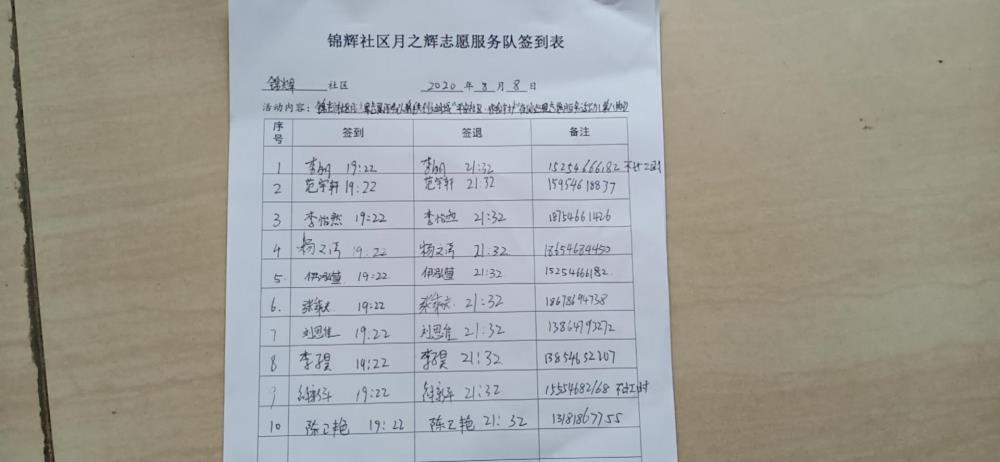 锦辉社区月之辉志愿服务队签到表
锦辉 社区 2020 年 8 月 8 日
活动内容:
序号 签到 签退 备注
1 李明 19:22 李明 21:32 15254666182 不计工时
2 范宇轩 19:22 范宇轩 21:32 15954618837
3 李怡然 19:22 李怡然 21:32 18754661426
4 杨文清 19:22 杨文清 21:32 18654684450
5. 伊泓萱 19:22 伊泓萱 21:32 15254666182
6. 19:22 21:32 18678694738
7 刘思佳 19:22 刘思佳 21:32 13864793272
8 李子昊 19:22 李子昊 21:32 13854652207
9 19:22 21:32 15554682168 不计工时
10 陈卫艳 19:22 陈卫艳 21:32 13181867755